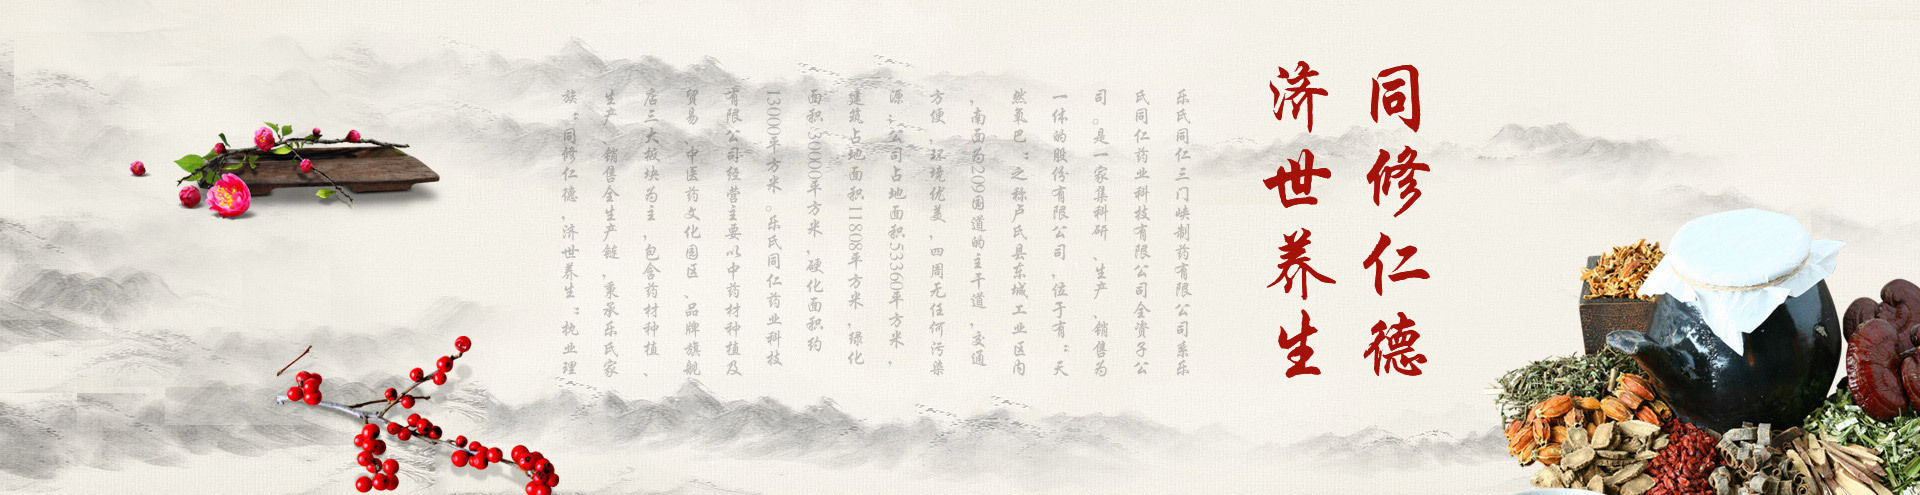 同修仁德
济世养生
乐氏同仁三门峡制药有限公司系乐
氏同仁药业科技有限公司全资子公
司。是一家集科研、生产、销售为
一体的股份有限公司,位于有:天
然氧巴:之称卢氏县东城工业区内
,南面为209国道的主干道,交通
方便,环境优美,四周无任何污染
源;公司占地面积53360平方米,
建筑占地面积11808平方米,绿化
面积30000平方米,硬化面积约
13000平方米。乐氏同仁药业科技
有限公司经营主要以中药材种植及
贸易、中医药文化园区、品牌旗舰
店三大板块为主,包含药材种植、
生产、销售全生产链,秉承乐氏家
族:同修仁德,济世养生:执业理